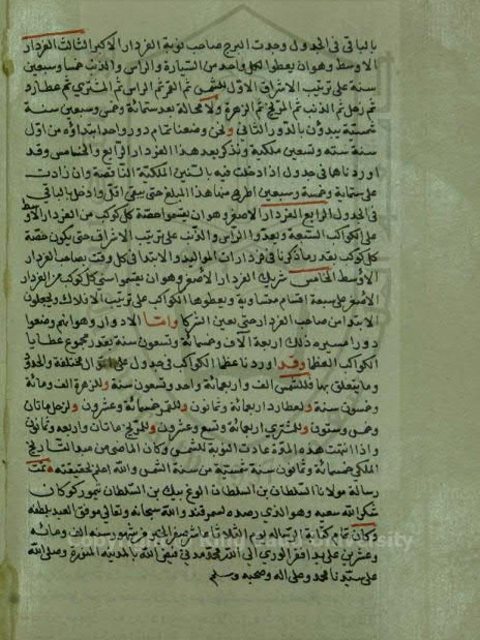 بالباقى فى الجدول وجدت البرج صاحب نوبة الفردار الاكبر الثالث الفردار
الاوسط وهو ان يعطوا لكل واحد من السيارة والراس والذنب خمسا وسبعين
سنة على ترتيب الاشراف الاول الشمس ثم القمر ثم الراس ثم المشترى ثم عطارد
ثم زحل ثم الذنب ثم المريخ ثم الزهرة ولا محالة بعد ستمائة وخمس وسبعين سنة
شمسية يبدؤن بالدور الثانى ونحن وضعنا تمام دور واحد ابتداؤه من اول
سنة سته وتسعين ملكية ونذكر بعد هذا الفردار الرابع والخامس وقد
اوردناها فى جدول اذا دخلت فيه بالسنين الملكية الناقصة وان زادت
على ستماية وخمسة وسبعين اطرح منها هذا المبلغ حتى يبقى اقل وادخل بالباقى
فى الجدول الرابع الفردار الاصغر وهو ان يقسموا حصة كل كوكب من الفردار الاوسط
على الكواكب السبعة وبعدوا الراس والذنب على ترتيب الاشراف حتى يكون حصة
كل كوكب بقدر ما ذكرنا فى فردارات المواليد والابتدا فى كل وقت بصاحب الفردار
الاوسط الخامس شريك الفردار الاصغر وهو ان يقسموا سنى كل كوكب من الفردار
الاصغر على سبعة اقسام متساوية ويعطوها الكواكب على ترتيب الافلاك ويجعلون
الابتدا من صاحب الفردار حتى تعين الشركا واما الادوار وهو انهم وضعوا
دورا مسيره ذلك اربعة آلاف وخمسمائة وتسعون سنة بقدر مجموع عطايا
الكواكب العظما وقد اوردنا عظما الكواكب فى جدول على احوال مختلفة والحدو
وما يتعلق بها فللشمس الف واربعمائة واحد وتسعون سنة وللزهرة الف ومائة
وخمسون سنة ولعطارد اربعمائة وثمانون وللقمر خمسمائة وعشرون ولزحل مائتان
وخمس وستون وللمشترى اربعمائة وتسع وعشرون وللمريخ مائتان واربعة وثمانون
واذا انتهت هذه المدة عادت النوبة للشمس وكان الماضى من مبدا التاريخ
الملكى خمسمائة وثمانون سنة شمسية من سنة الشمس والله اعلم بحقيقته تمت
رسالة مولانا السلطان بن السلطان الوغ بيك بن السلطان تيمور كوركان
شكر الله سعيه وهو الذى رصده بسمرقند والله سبحانه وتعالى موفق العبد بلطفه
وكان تمام كتابة الرساله يوم الثلاثا عاشر صفر الخير من شهور سنه الف ومائه
وعشرين على يد افقر الورى الى الله محمد مدنى فيض الله بالمدينه المنورة وصلى الله
على سيدنا محمد وعلى اله وصحبه وسلم